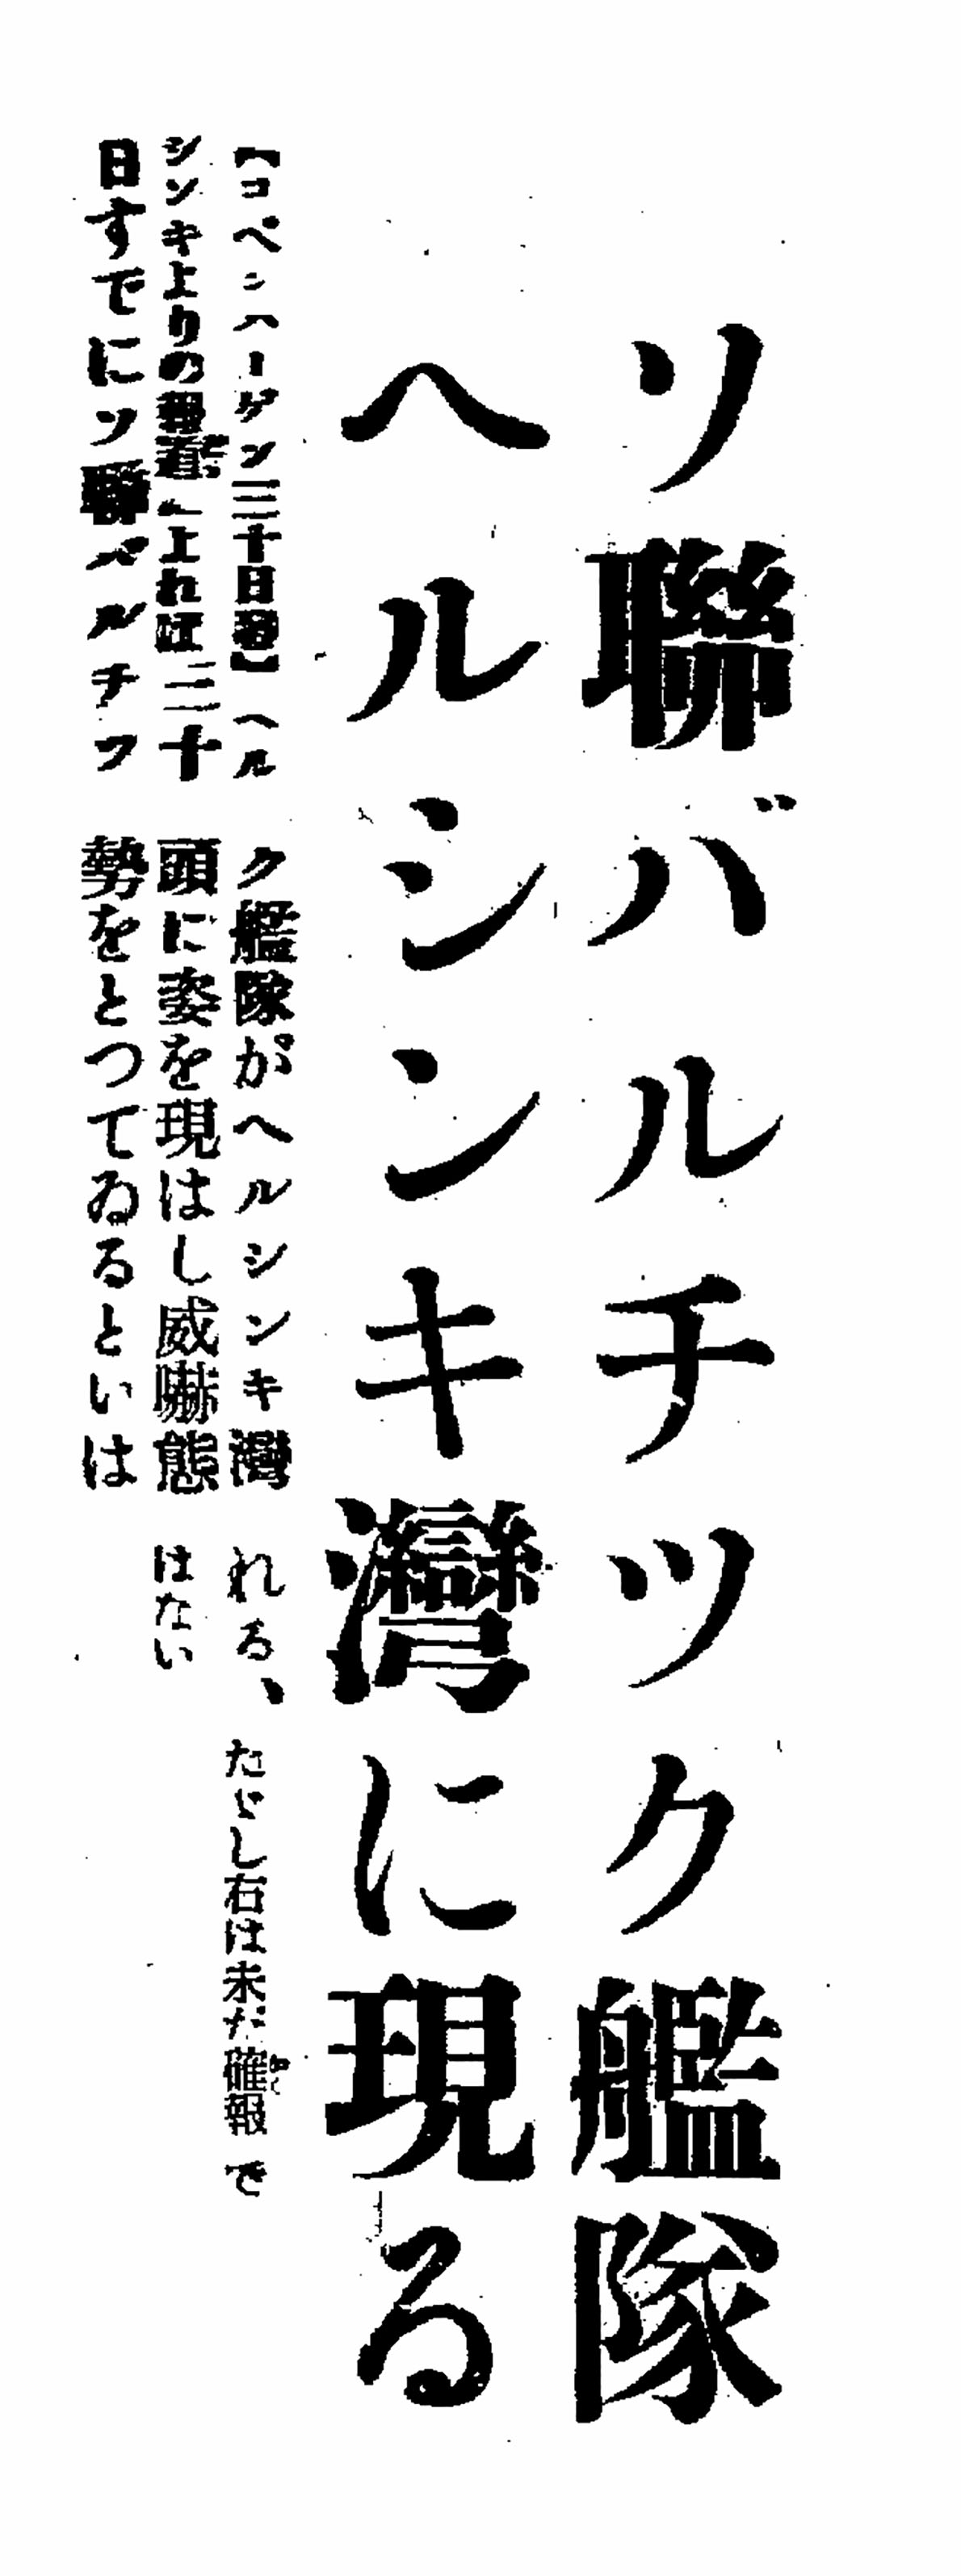 ソ聯バルチツク艦隊
ヘルシンキ灣に現る
【コペンハーゲン三十日發】ヘル
シンキよりの報道によれば三十
日すでにソ聯バルチツ
ク艦隊がヘルシンキ灣
頭に姿を現はし威嚇態
勢をとつてゐるといは
れる、
たゞし右は未だ確報で
はない